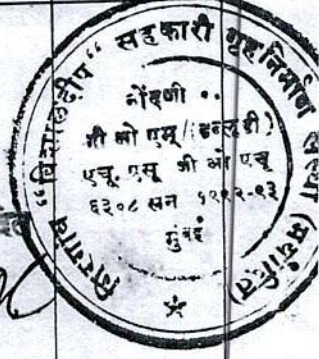 गिरगांव "विशालदीप" सहकारी गृहनिर्माण संस्था (मर्यादित)
नोंदणी ..
बी ओ एम/(डब्लूडी)
एचू. एसू जी ओ एच
६३०८ सन १९९२-९३
मुंबई